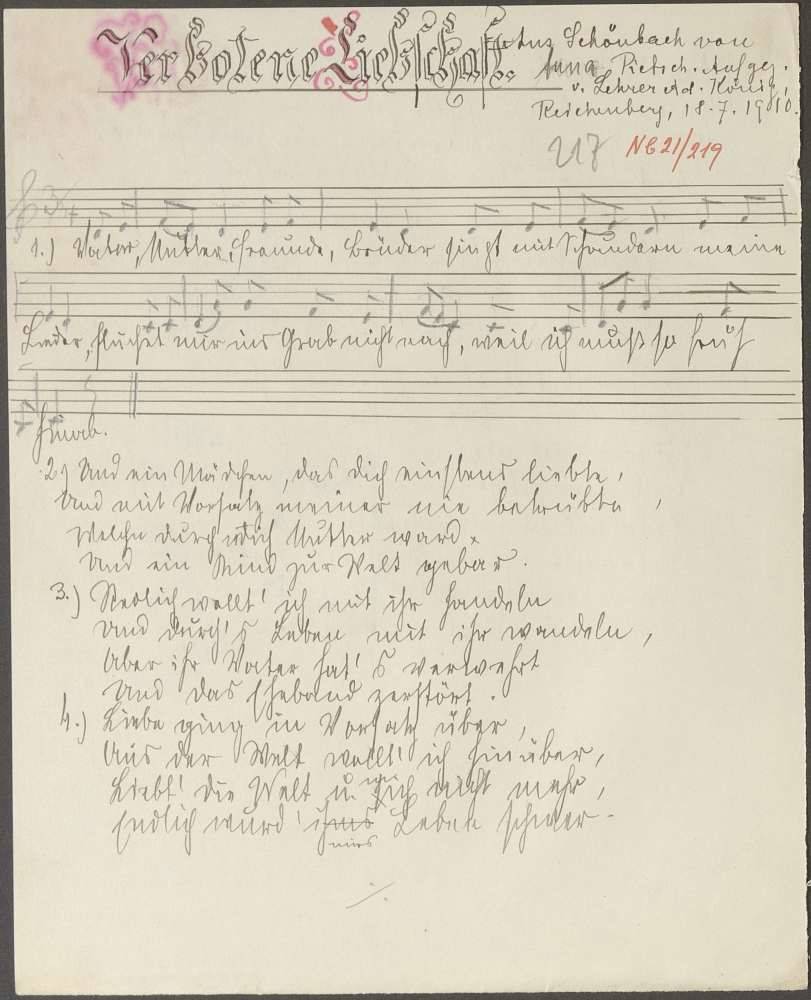 Verbotene Liebschaft.
Aus Schönbach von
Anna Pietsch. Aufgez.
v. Lehrer Ad. König,
Reichenberg, 18.7.1910.
217 NB 21/219
3/4
1.) Vater, Mutter, Freunde, Brüder singt mit Schaudern meine
Lieder, fluchet mir ins Grab nicht nach, weil ich muß so früh
hinab.
2.) Und ein Mädchen, das dich einstens liebte,
Und mit Vorsatz meiner nie betrübte,
Welche durch mich Mutter ward
Und ein Kind zur Welt gebar.
3.) Redlich wollt' ich mit ihr handeln
Und durch's Leben mit ihr wandeln,
Aber ihr Vater hat's verwehrt
Und das Eheband zerstört.
4.) Liebe ging in Vorsatz über,
Aus der Welt wollt' ich hinüber,
Liebt' die Welt u. mich nicht mehr,
Endlich wurd' ihms Leben schwer.
mirs